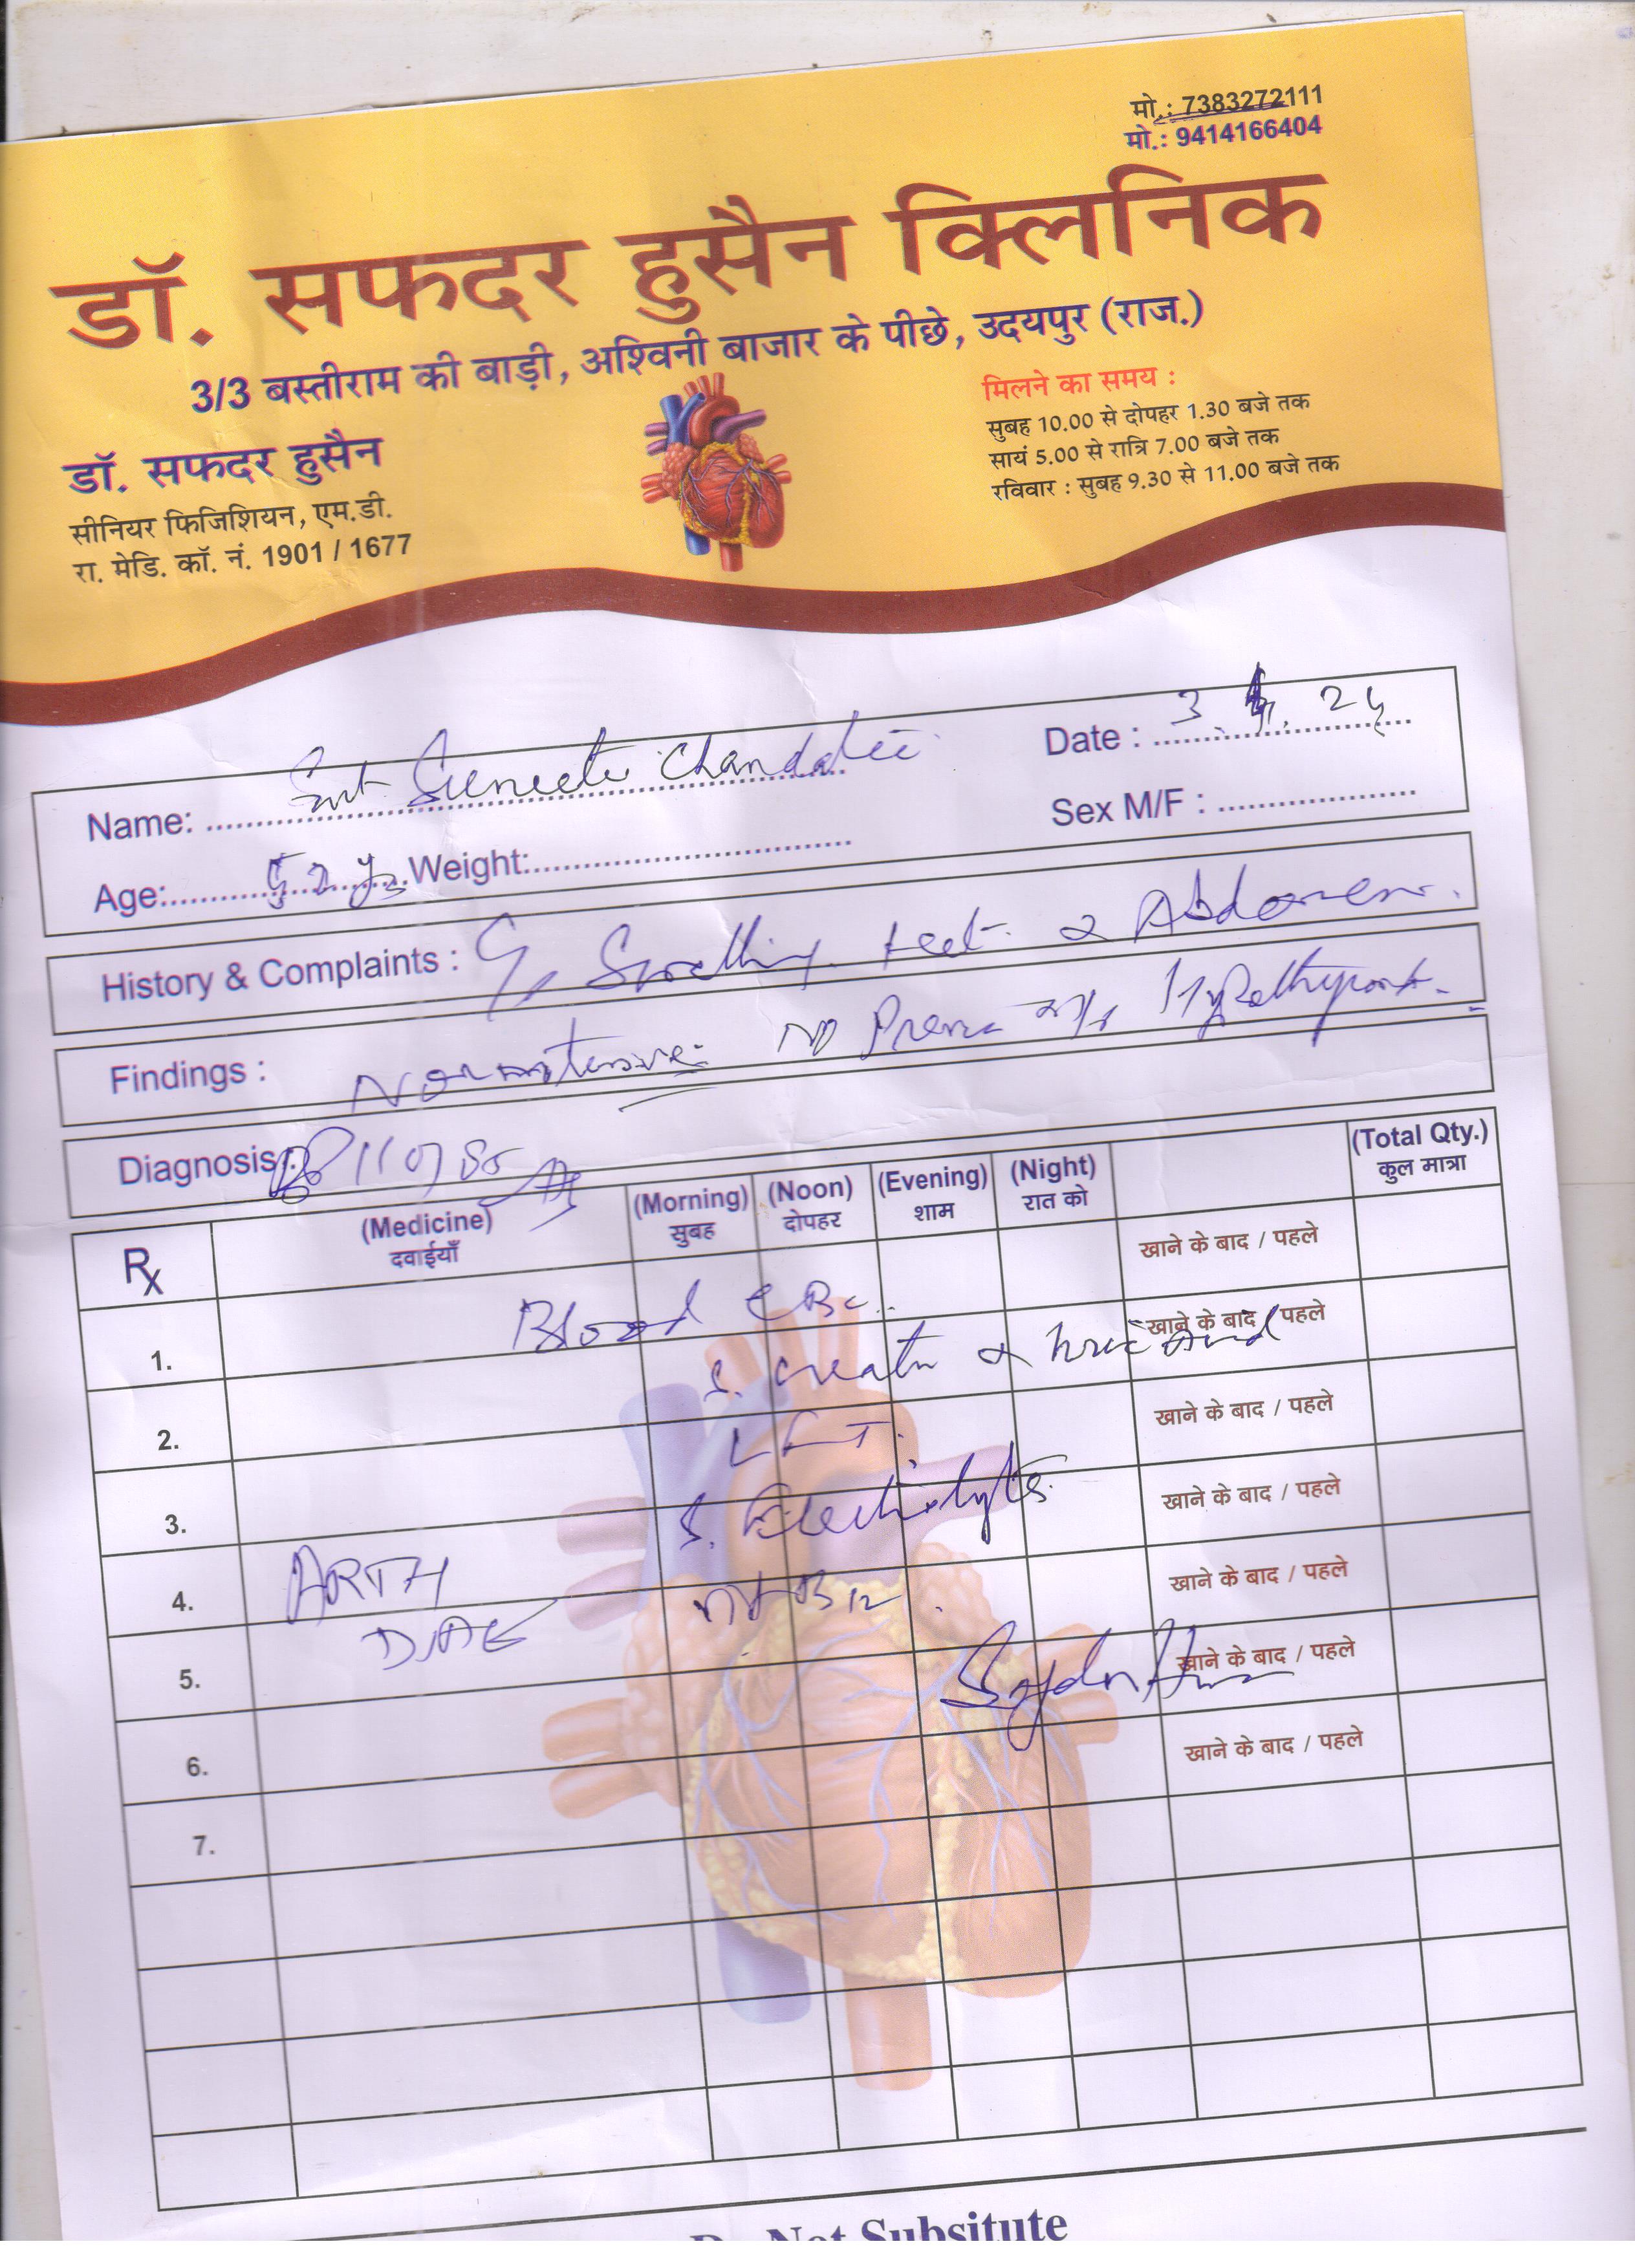 मो.: 7383272111
मो.: 9414166404
डॉ. सफदर हुसैन क्लिनिक
3/3 बस्तीराम की बाड़ी, अश्विनी बाजार के पीछे, उदयपुर (राज.)
डॉ. सफदर हुसैन
सीनियर फिजिशियन, एम.डी.
रा. मेडि. कॉ. नं. 1901 / 1677
मिलने का समय :
सुबह 10.00 से दोपहर 1.30 बजे तक
सायं 5.00 से रात्रि 7.00 बजे तक
रविवार : सुबह 9.30 से 11.00 बजे तक
Name: Smt
Date : 3.
Age: 52 yrs Weight:
Sex M/F :
History & Complaints : C/o Swelling feet & Abdomen.
Findings : Normotensive No
Diagnosis : 110/80
Rx
(Medicine) दवाईयाँ
(Morning) सुबह
(Noon) दोपहर
(Evening) शाम
(Night) रात को
(Total Qty.) कुल मात्रा
खाने के बाद / पहले
Blood CBC
1. खाने के बाद / पहले
S. creatn & Uric Acid
2. खाने के बाद / पहले
LFT.
3. खाने के बाद / पहले
S. Electrolytes
4. ARTH
खाने के बाद / पहले
B12
5. खाने के बाद / पहले
6. खाने के बाद / पहले
7.
Not Subsitute